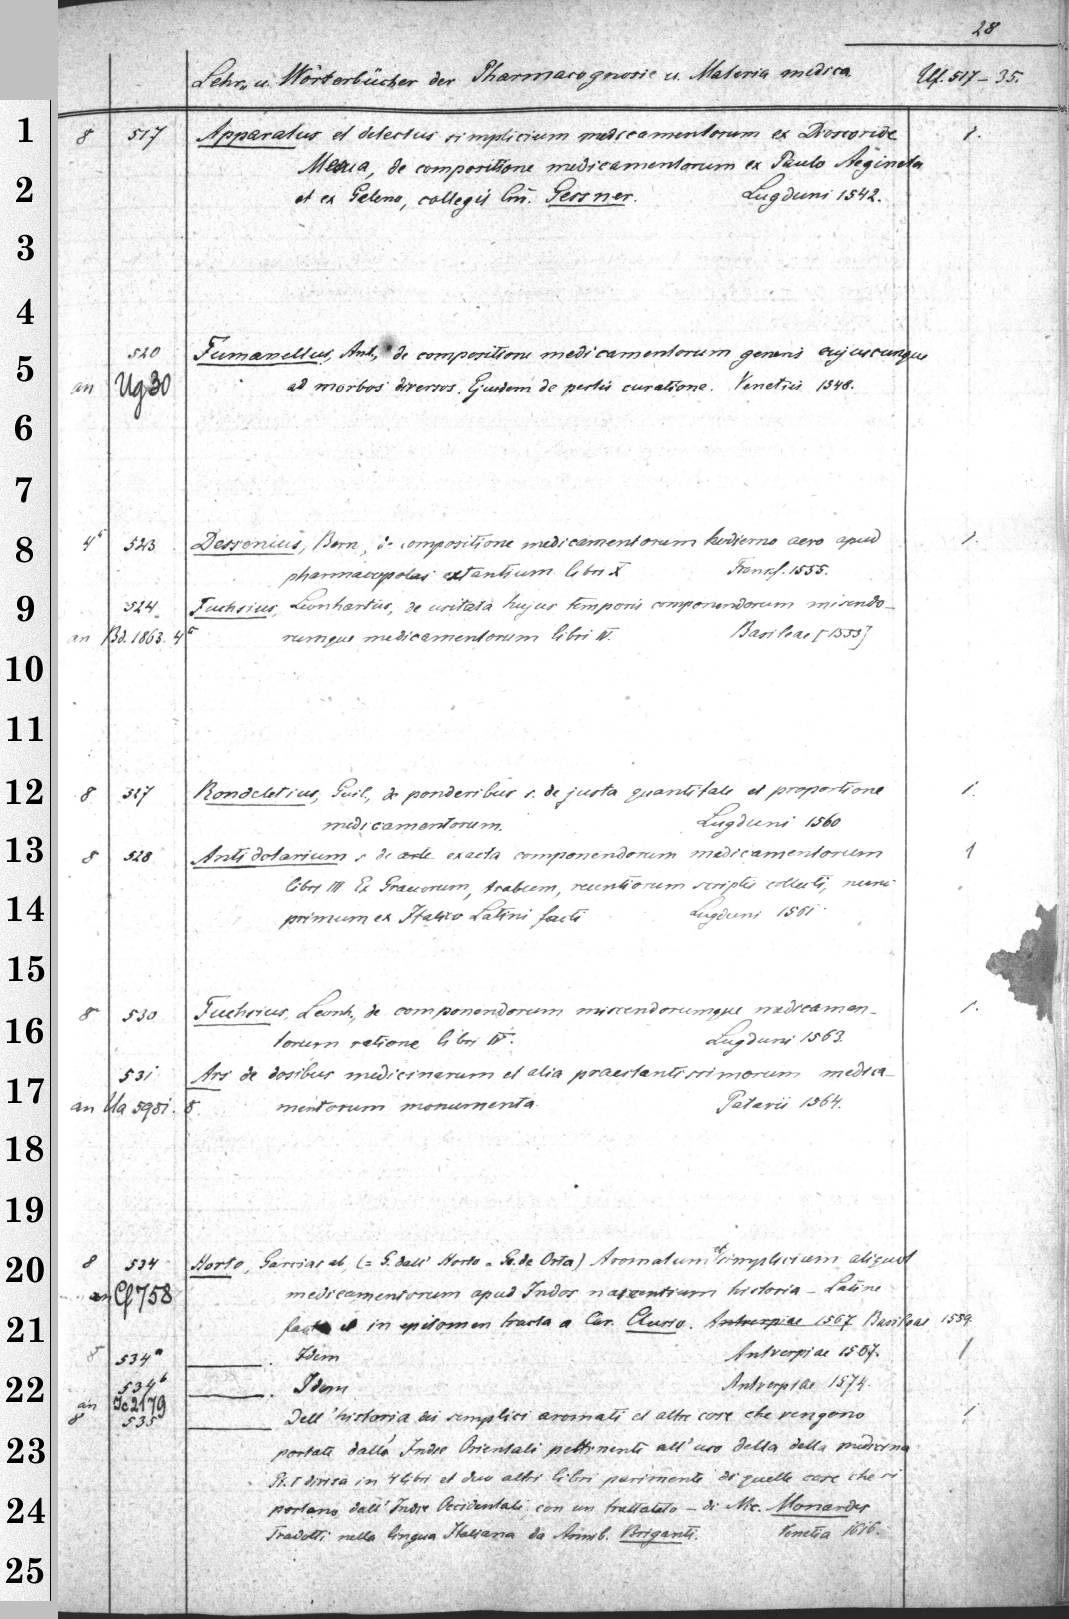 28
Lehr- u. Wörterbücher der Pharmacognosie u. Materia medica. Uf. 517-35.
1
8 517 Apparatus et delectus simplicium medicamentorum ex Dioscoride 1.
Mesua, de compositione medicamentorum ex Paulo Aegineta
2
et ex Galeno, collegit Gessner. Lugduni 1542.
3
4
520 Fumanellus, Ant., de compositione medicamentorum generis cujuscunque
5
an Ug 30 ad morbos diversos. Ejusdem de pestis curatione. Venetiis 1548.
6
7
8
4° 523 Dessenius, Bern., de compositione medicamentorum hodierno aevo apud 1.
pharmacopolas extantium libri X Francf. 1555.
9
524 Fuchsius, Leonhartus, de usitata hujus temporis componendorum miscendo-
an Bd. 1863. 4° rumque medicamentorum libri IV. Basileae [1555]
10
11
12
8 527 Rondeletius, Guil., de ponderibus s. de justa quantitate et proportione 1.
medicamentorum. Lugduni 1560
13
8 528 Antidotarium s. de arte exacta componendorum medicamentorum 1
libri III Ex Graecorum, Arabum, recentiorum scriptis collecti, nunc
14
primum ex Italico Latini facti Lugduni 1561.
15
16
8 530 Fuchsius, Leonh., de componendorum miscendorumque medicamen- 1.
torum ratione libri IV. Lugduni 1563.
17
531 Ars de dosibus medicinarum et alia praestantissimorum medica-
an Ua 5981. 8. mentorum monumenta. Patavii 1564.
18
19
20
8 534 Horto, Garcias ab, (= G. dall' Horto = G. de Orta) Aromatum et simplicium aliquot
an Cf 758 medicamentorum apud Indos nascentium historia - Latine
21
facta et in epitomen tracta a Car. Clusio. Antverpiae 1567 Basileae 1559.
8 534a ———. Idem Antverpiae 1567. 1
22
534b ———. Idem Antverpiae 1574.
an Jc 2179
8 535 ——— Dell' historia dei semplici aromati et altre cose che vengono 1
23
portate dalle Indie Orientali pertinenti all' uso della della medicina
Pt. I divisa in 4 libri et duo altri libri parimente di quelle cose che si
24
portano dall' Indie Occidentali con un trattateto - di Nic. Monardes
Tradotti nella lingua Italiana da Annib. Briganti. Venetia 1616.
25